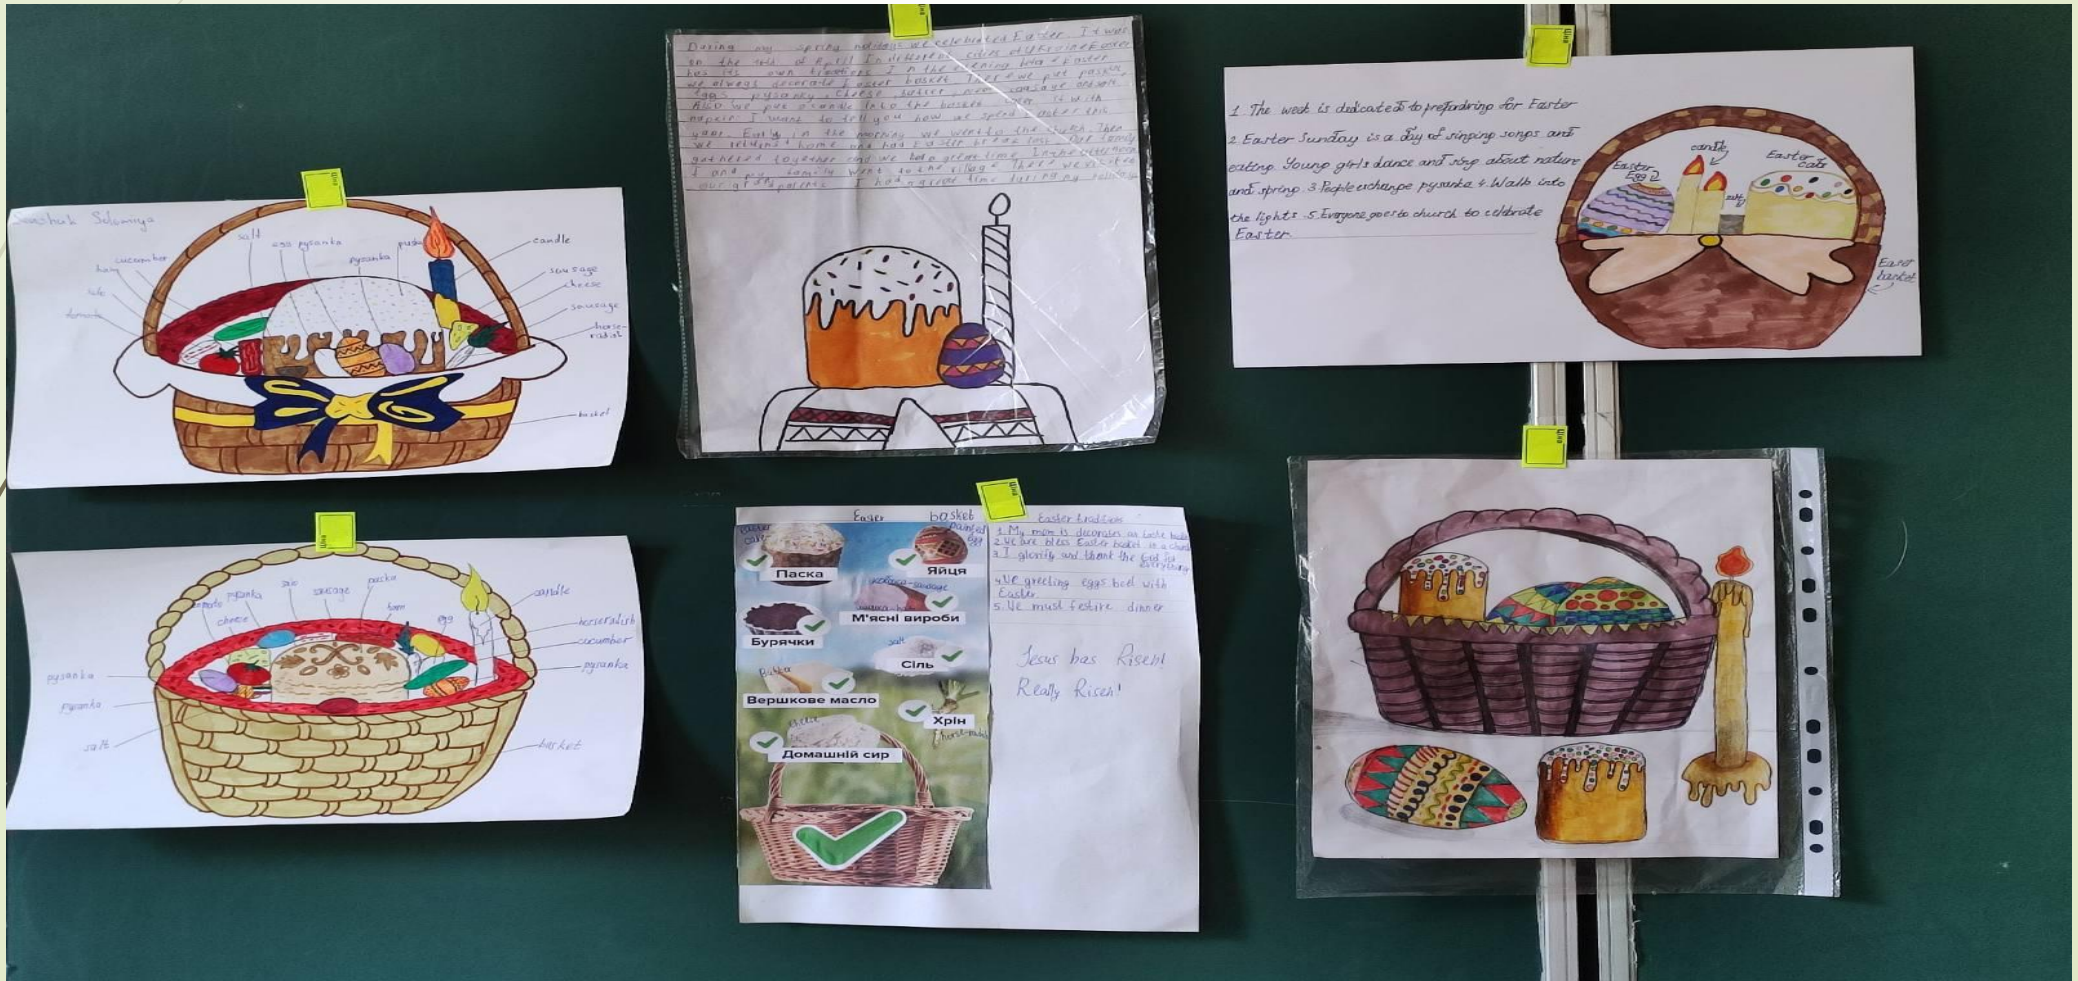 Solomiya
salt
egg pysanka
pysanka
candle
cucumber
ham
salo
tomato
sausage
cheese
sausage
horse-
radish
basket
During my spring holidays we celebrated Easter. It was
on the of April In different cities of Ukraine Easter
has its own I in the evening Easter
we always decorate Easter basket There we put paska,
eggs, pysanky, cheese, butter, sausage
Also we put a candle into the basket it with
napkin. I want to tell you how we spend Easter this
year. Early in the morning we went to the church. Then
we returned home and had Easter breakfast. Our family
gathered together and we time
I and my family went to the village There we visited
our grandparents. I had a great time during my holidays
1. The week is dedicated to for Easter
2. Easter Sunday is a day of singing songs and
eating. Young girls dance and sing about nature
and spring. 3. People exchange pysanka 4. Walk into
the lights. 5. Everyone goes to church to celebrate
Easter.
Easter
Egg
candle
salt
Easter
cake
Easter
basket
salo
sausage
paska
ham
pysanka
tomato
cheese
egg
candle
horseradish
cucumber
pysanka
pysanka
pysanka
salt
basket
Easter basket
Easter
cake
painted
egg
Паска
Яйця
ковбаса-sausage
М'ясні вироби
Бурячки
salt
Сіль
Вершкове масло
Хрін
horse-radish
cheese
Домашній сир
Easter traditions
1. My mom is decorates
2. We are bless Easter basket in a church
3. I glorify and thank the God for
everything
4. We greeting eggs beel with
Easter.
5. We must festive dinner
Jesus has Risen!
Really Risen!